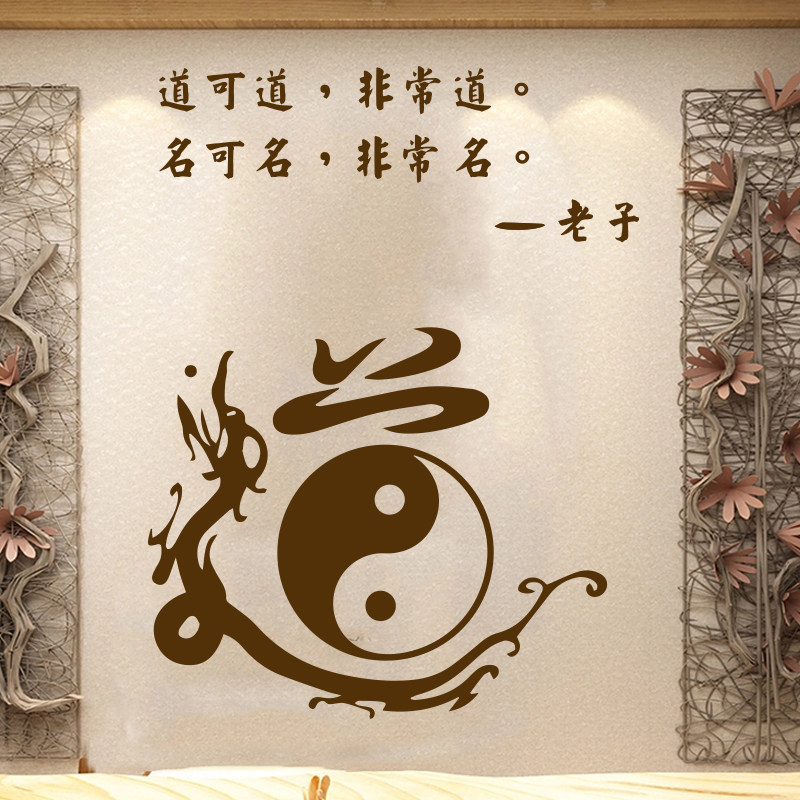 道可道，非常道。
名可名，非常名。
—老子
道